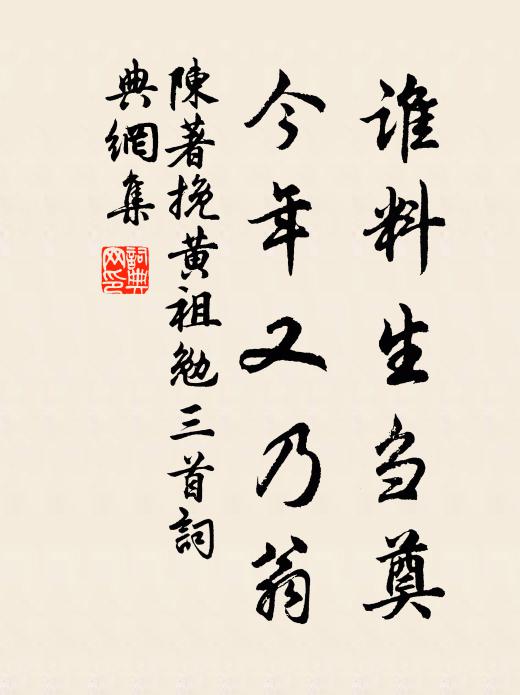 谁料生刍奠
今年又乃翁
陳著挽黄祖勉三首詞
典網集
詞典網印